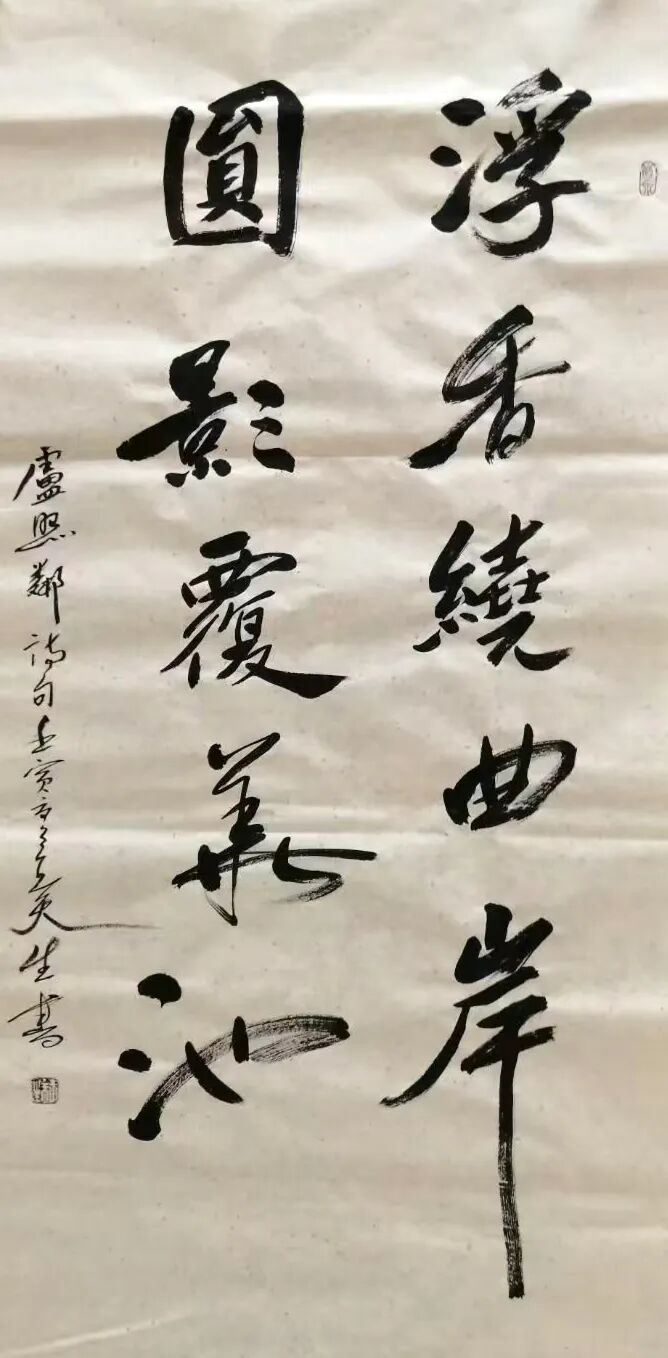 浮香繞曲岸
圓影覆華池
盧照鄰詩句壬寅年天生書